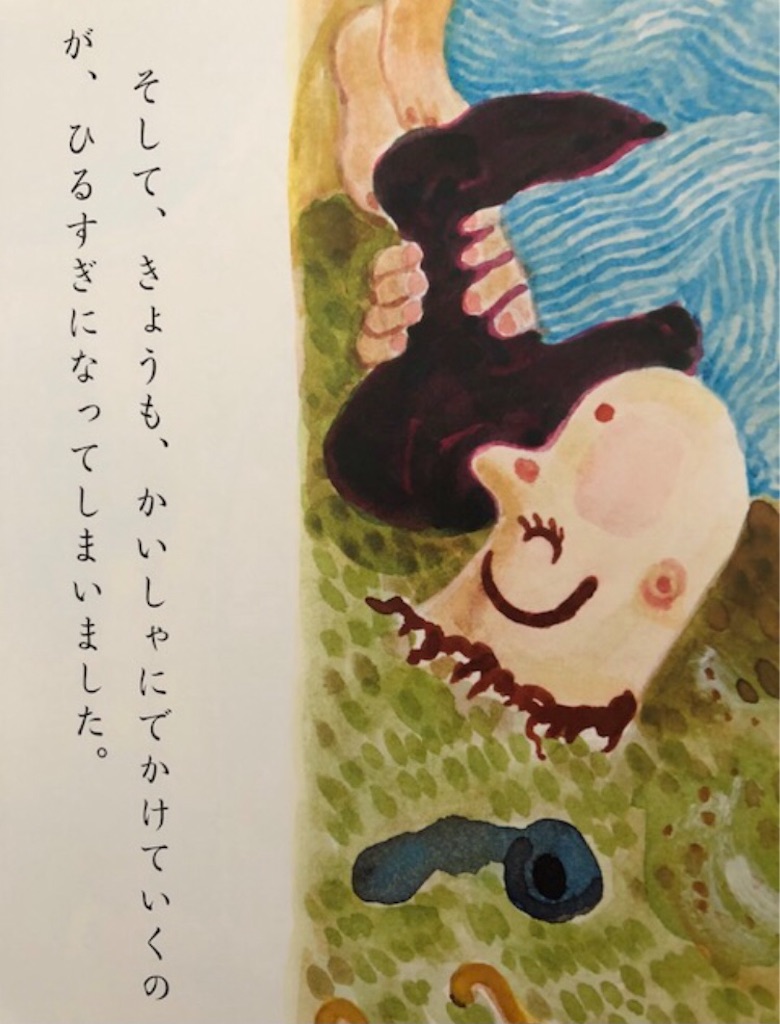 そして、きょうも、かいしゃにでかけていくの
が、ひるすぎになってしまいました。